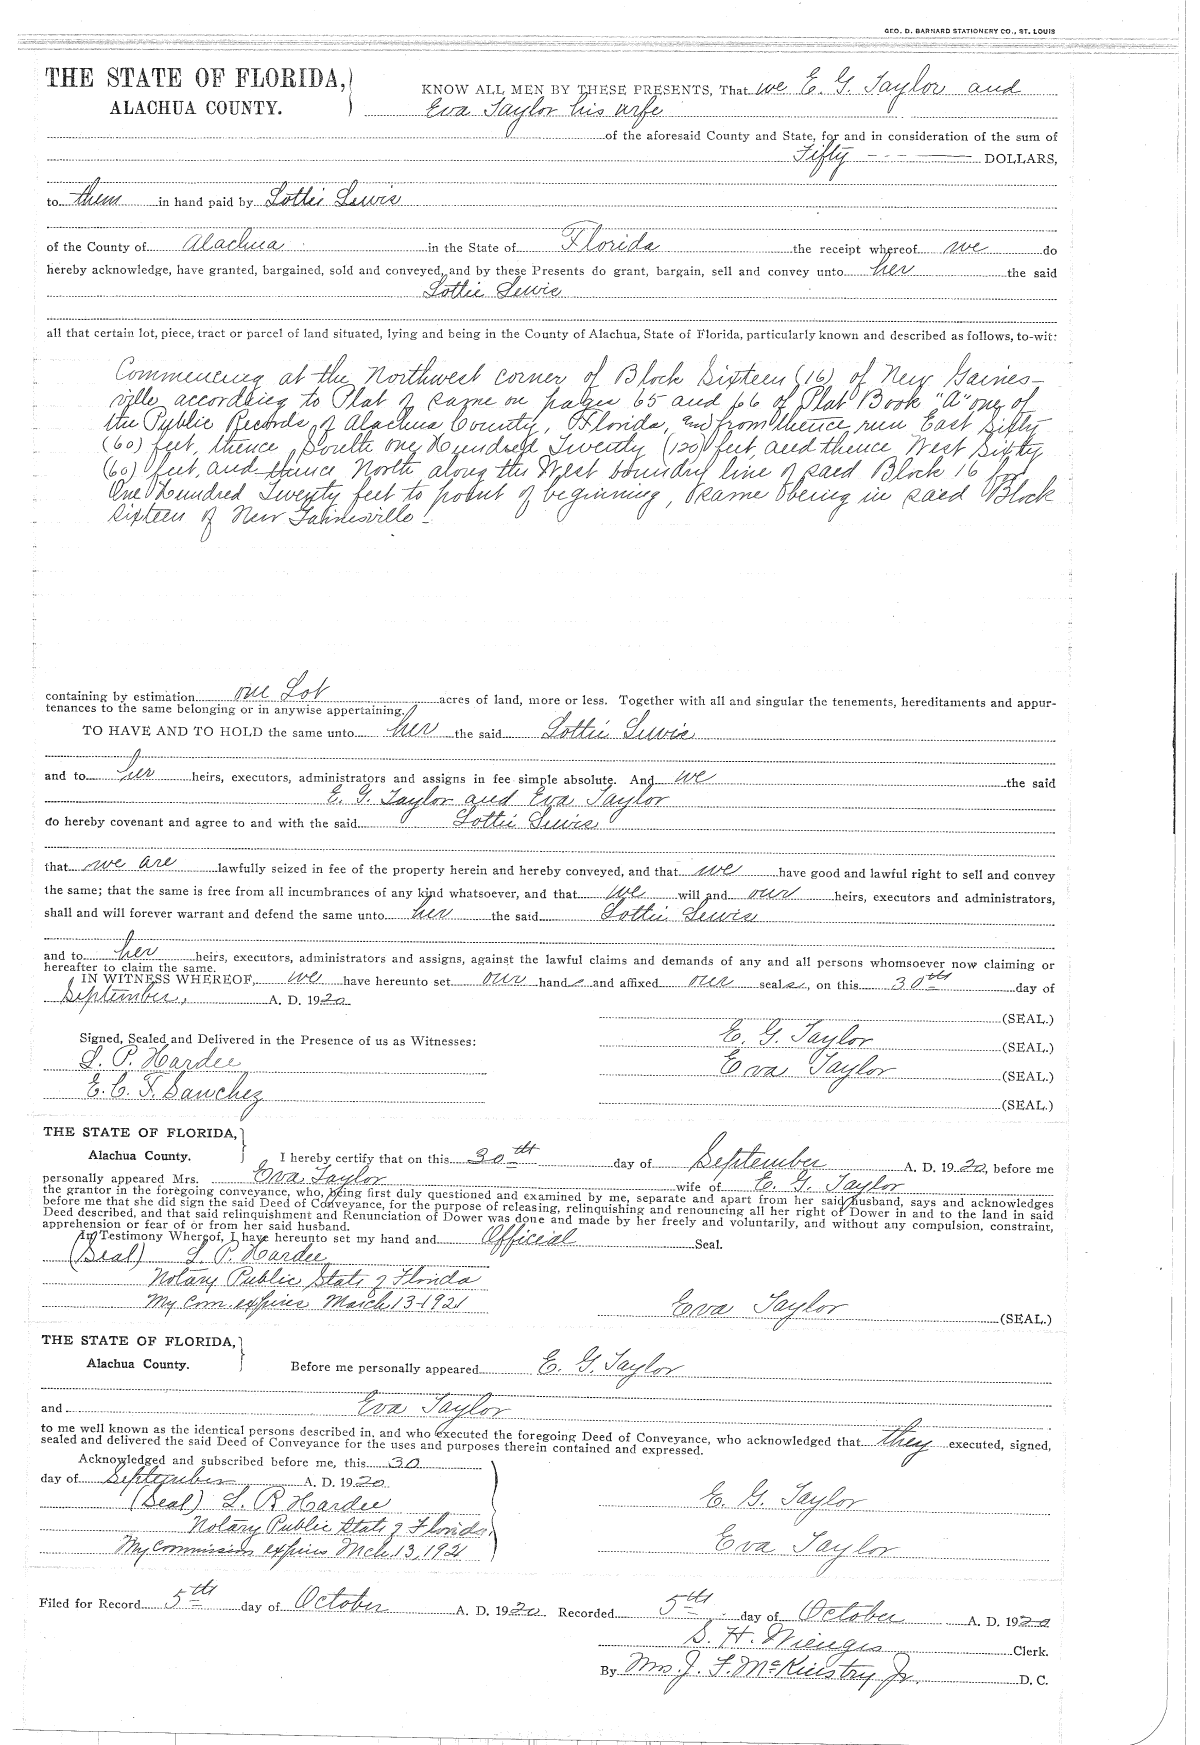 GEO. D. BARNARD STATIONERY CO., ST. LOUIS
THE STATE OF FLORIDA,
ALACHUA COUNTY.
KNOW ALL MEN BY THESE PRESENTS, That we E. G. Taylor and
Eva Taylor his wife
of the aforesaid County and State, for and in consideration of the sum of
Fifty - - - —— DOLLARS,
to them in hand paid by Lottie Lewis
of the County of Alachua in the State of Florida the receipt whereof we do
hereby acknowledge, have granted, bargained, sold and conveyed, and by these Presents do grant, bargain, sell and convey unto her the said
Lottie Lewis
all that certain lot, piece, tract or parcel of land situated, lying and being in the County of Alachua, State of Florida, particularly known and described as follows, to-wit:
Commencing at the Northwest corner of Block Sixteen (16) of New Gaines-
ville, according to Plat of same on pages 65 and 66 of Plat Book "A" one of
the Public Records of Alachua County, Florida, and from thence run East Sixty
(60) feet, thence South one Hundred Twenty (120) feet, and thence West Sixty
(60) feet, and thence North along the West boundry line of said Block 16 for
One Hundred Twenty feet to point of beginning, same being in said Block
Sixteen of New Gainesville -
containing by estimation one Lot acres of land, more or less. Together with all and singular the tenements, hereditaments and appur-
tenances to the same belonging or in anywise appertaining.
TO HAVE AND TO HOLD the same unto her the said Lottie Lewis
and to her heirs, executors, administrators and assigns in fee simple absolute. And we the said
E. G. Taylor and Eva Taylor
do hereby covenant and agree to and with the said Lottie Lewis
that we are lawfully seized in fee of the property herein and hereby conveyed, and that we have good and lawful right to sell and convey
the same; that the same is free from all incumbrances of any kind whatsoever, and that we will and our heirs, executors and administrators,
shall and will forever warrant and defend the same unto her the said Lottie Lewis
and to her heirs, executors, administrators and assigns, against the lawful claims and demands of any and all persons whomsoever now claiming or
hereafter to claim the same.
IN WITNESS WHEREOF, we have hereunto set our hands and affixed our seals, on this 30th day of
September, A. D. 1920
(SEAL.)
Signed, Sealed and Delivered in the Presence of us as Witnesses:
E. G. Taylor (SEAL.)
L. P. Hardee
Eva Taylor (SEAL.)
E. C. F. Sanchez
(SEAL.)
THE STATE OF FLORIDA,
Alachua County.
I hereby certify that on this 30th day of September A. D. 1920, before me
personally appeared Mrs. Eva Taylor wife of E. G. Taylor
the grantor in the foregoing conveyance, who, being first duly questioned and examined by me, separate and apart from her said husband, says and acknowledges
before me that she did sign the said Deed of Conveyance, for the purpose of releasing, relinquishing and renouncing all her right of Dower in and to the land in said
Deed described, and that said relinquishment and Renunciation of Dower was done and made by her freely and voluntarily, and without any compulsion, constraint,
apprehension or fear of or from her said husband.
In Testimony Whereof, I have hereunto set my hand and Official Seal.
(Seal) L. P. Hardee
Notary Public State of Florida
My Com. expires March 13-1921
Eva Taylor (SEAL.)
THE STATE OF FLORIDA,
Alachua County.
Before me personally appeared E. G. Taylor
and Eva Taylor
to me well known as the identical persons described in, and who executed the foregoing Deed of Conveyance, who acknowledged that they executed, signed,
sealed and delivered the said Deed of Conveyance for the uses and purposes therein contained and expressed.
Acknowledged and subscribed before me, this 30
day of September A. D. 1920
(Seal) L. P. Hardee
E. G. Taylor
Notary Public State of Florida,
My Commission expires Mch 13, 1921
Eva Taylor
Filed for Record 5th day of October A. D. 1920 Recorded 5th day of October A. D. 1920
S. H. Wienges Clerk.
By Mrs. J. F. McKinstry Jr. D. C.